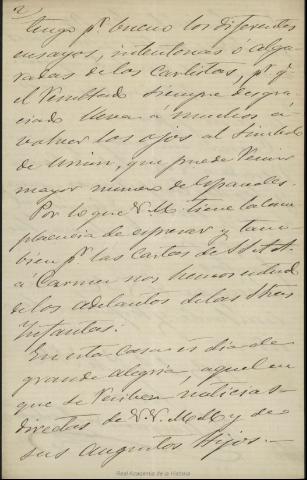 2
tengo pr. bueno los diferentes
ensayos, intentonas o alga-
radas de los Carlistas, pr. q.
el resultado siempre desgra-
ciado lleva a muchos á
volver los ojos al Símbolo
de Union, que puede reunir
mayor número de Españoles.
Por lo que V.M. tiene la com
placencia de expresar y tam-
bien pr. las cartas de
á Carmen nos hemos
de los adelantos de las Stas
Infantas.
En esta Casa es dia de
grande alegria, aquel en
que se reciben noticias
directas de V.V. M.M. y de
sus augustos Hijos.—
Real Academia de la Historia